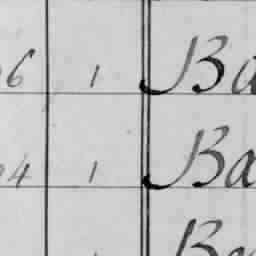 6 1 Ba
4 1 Ba
Ba